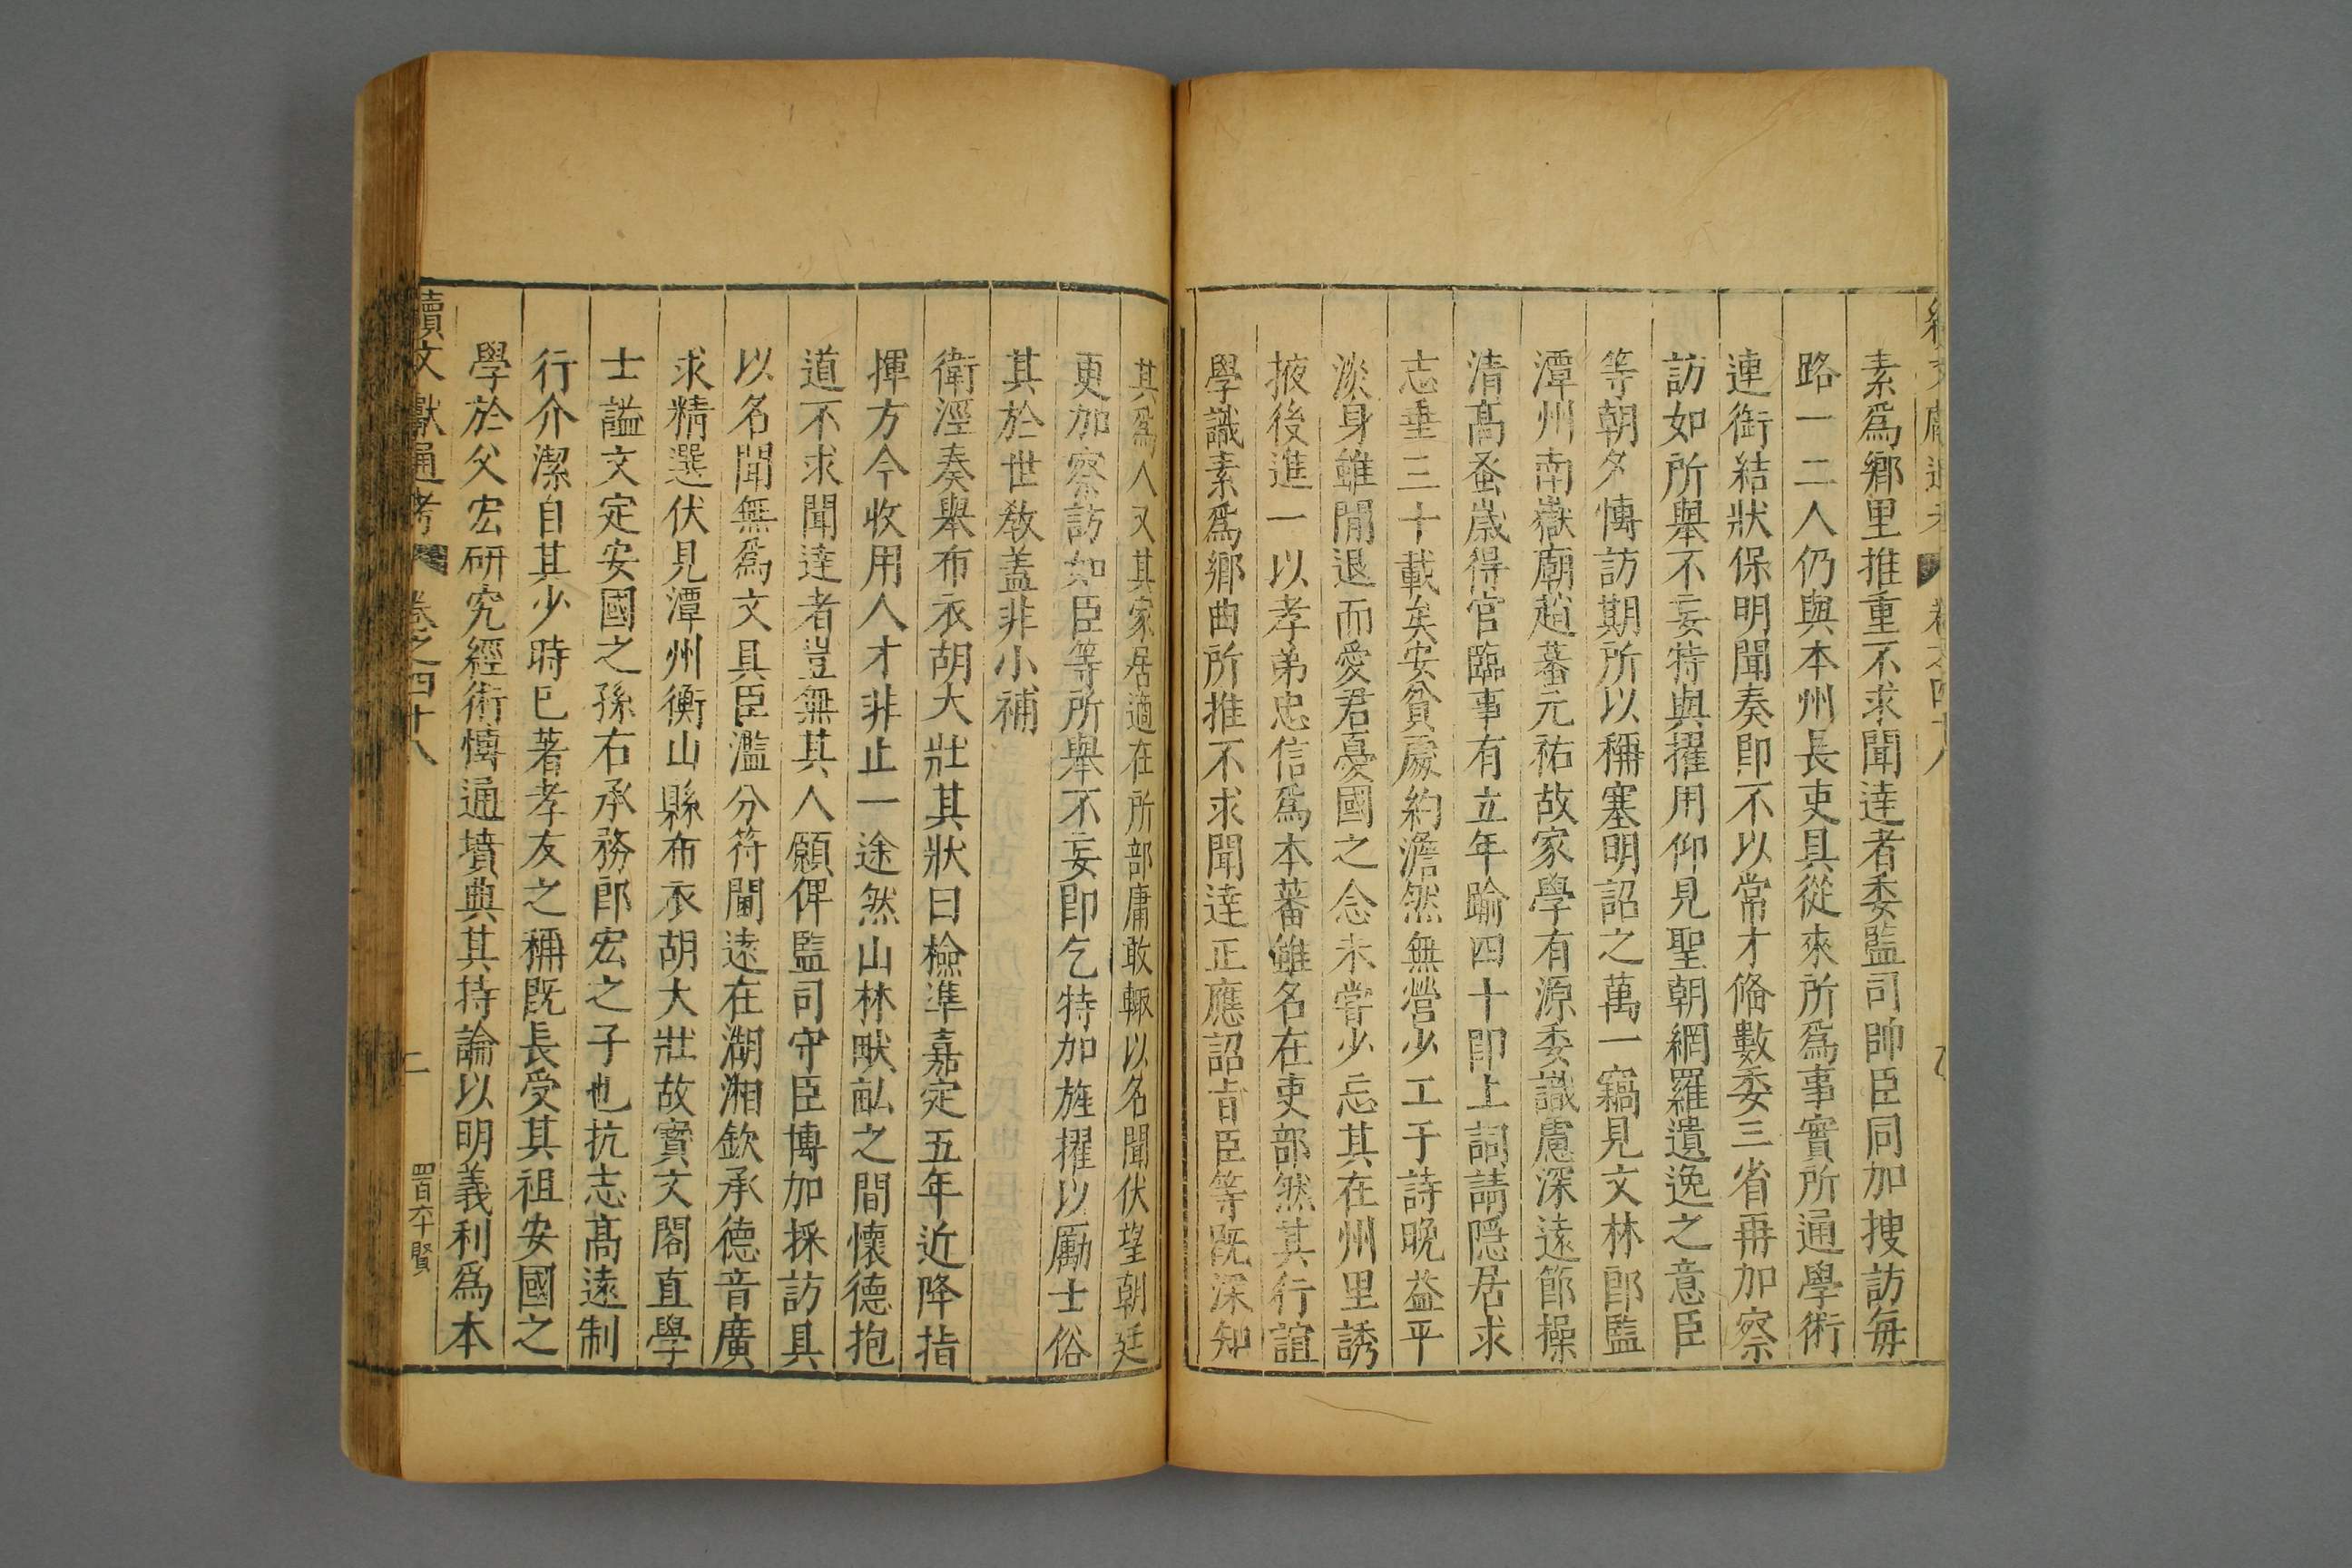 素爲鄉里推重不求聞達者委監司帥臣同加搜訪每
路一二人仍與本州長吏具從來所爲事實所通學術
連銜結狀保明聞奏即不以常才備數委三省再加察
訪如所舉不妄特與擢用仰見聖朝網羅遺逸之意臣
等朝夕慱訪期所以稱塞明詔之萬一竊見文林郎監
潭州南嶽廟趙蕃元祐故家學有源委識慮深遠節操
清髙蚤歳得官臨事有立年踰四十即上詞請隠居求
志垂三十載矣安貧處約澹然無營少工于詩晚益平
淡身雖閒退而愛君憂國之念未嘗少忘其在州里誘
掖後進一以孝弟忠信爲本蕃雖名在吏部然其行誼
學識素爲鄉曲所推不求聞達正應詔旨臣等既深知
其爲人又其家居適在所部庸敢輒以名聞伏望朝廷
更加察訪如臣等所舉不妄即乞特加旌擢以勵士俗
其於世敎蓋非小補
衛涇奏舉布衣胡大壯其狀曰檢準嘉定五年近降指
揮方今收用人才非止一途然山林畎畝之間懷德抱
道不求聞達者豈無其人願俾監司守臣博加採訪具
以名聞無爲文具臣濫分符閫逺在湖湘欽承德音廣
求精選伏見潭州衡山縣布衣胡大壯故寶文閣直學
士謚文定安國之孫右承務郎宏之子也抗志髙逺制
行介潔自其少時已著孝友之稱既長受其祖安國之
學於父宏研究經術慱通墳典其持論以明義利爲本
續文獻通考 卷之四十八 二 四百六十賢